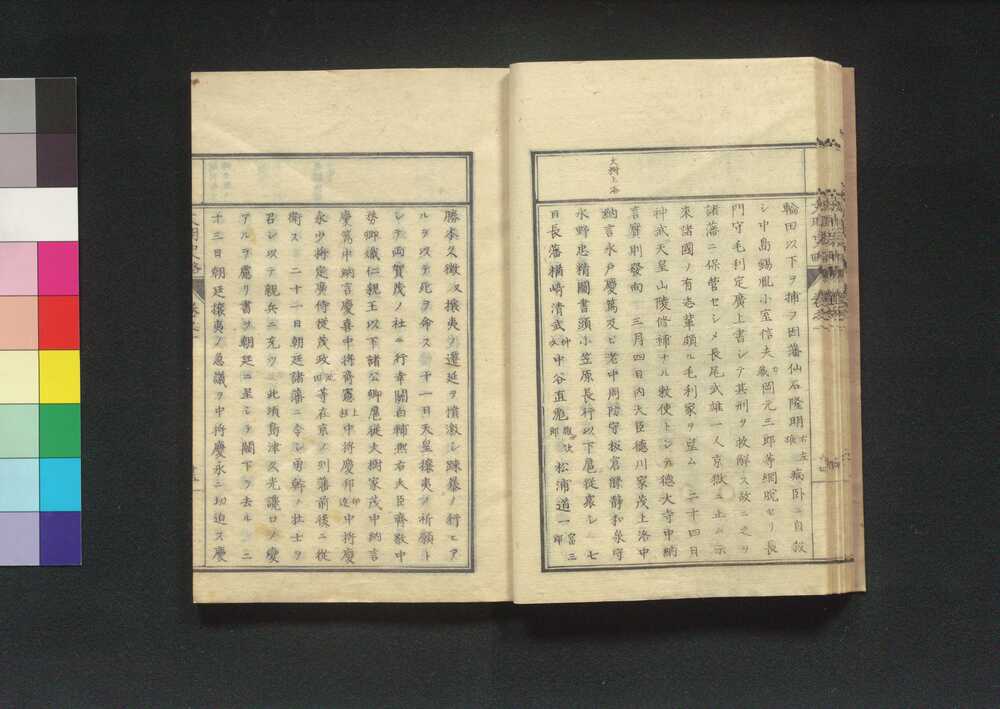 大樹上洛
輪田以下ヲ捕ヲ因藩仙石隆明 病臥ニ自殺
シ中島錫胤小室信夫 岡元三郎等網脱セリ長
門守毛利定廣上書シテ其刑ヲ救解ス故ニ之ヲ
諸藩ニ保管セシメ長尾武雄一人京獄ニ止ム示
來諸國ノ有志輩頗ル毛利家ヲ望ム 二十四日
神武天皇山陵修補ナル敕使トシテ德大寺中納
言實則發向 三月四日内大臣德川家茂上洛中
納言水戸慶篤及ヒ老中周防守板倉勝靜和泉守
水野忠精圖書頭小笠原長行以下扈從裹レ 七
日長藩楢崎清武 中谷直亮 松浦道一
勝本久徴 攘夷ヲ遷延ヲ憤激シ疎暴ノ行ヒア
ルヲ以テ死ヲ命ス 十一日天皇攘夷ヲ祈願ト
シテ両賀茂ノ社ニ行幸關白輔煕右大臣齊敬中
務卿幟仁親王以下諸公卿扈從大樹家茂中納言
慶篤中納言慶喜中將齊憲 中將慶邦 中將慶
永少將定廣侍從茂政 等在京ノ列藩前後ニ從
衛ス 二十一日朝廷諸藩ニ令シ勇幹ノ壮士ヲ
召シ以テ親兵ニ充ツ 此頃島津久光讒口ノ慶
アルヲ慮リ書ヲ朝廷ニ呈シテ闕下ヲ去ル 二
十三日朝廷攘夷ノ急議ヲ中將慶永ニ切迫ス慶